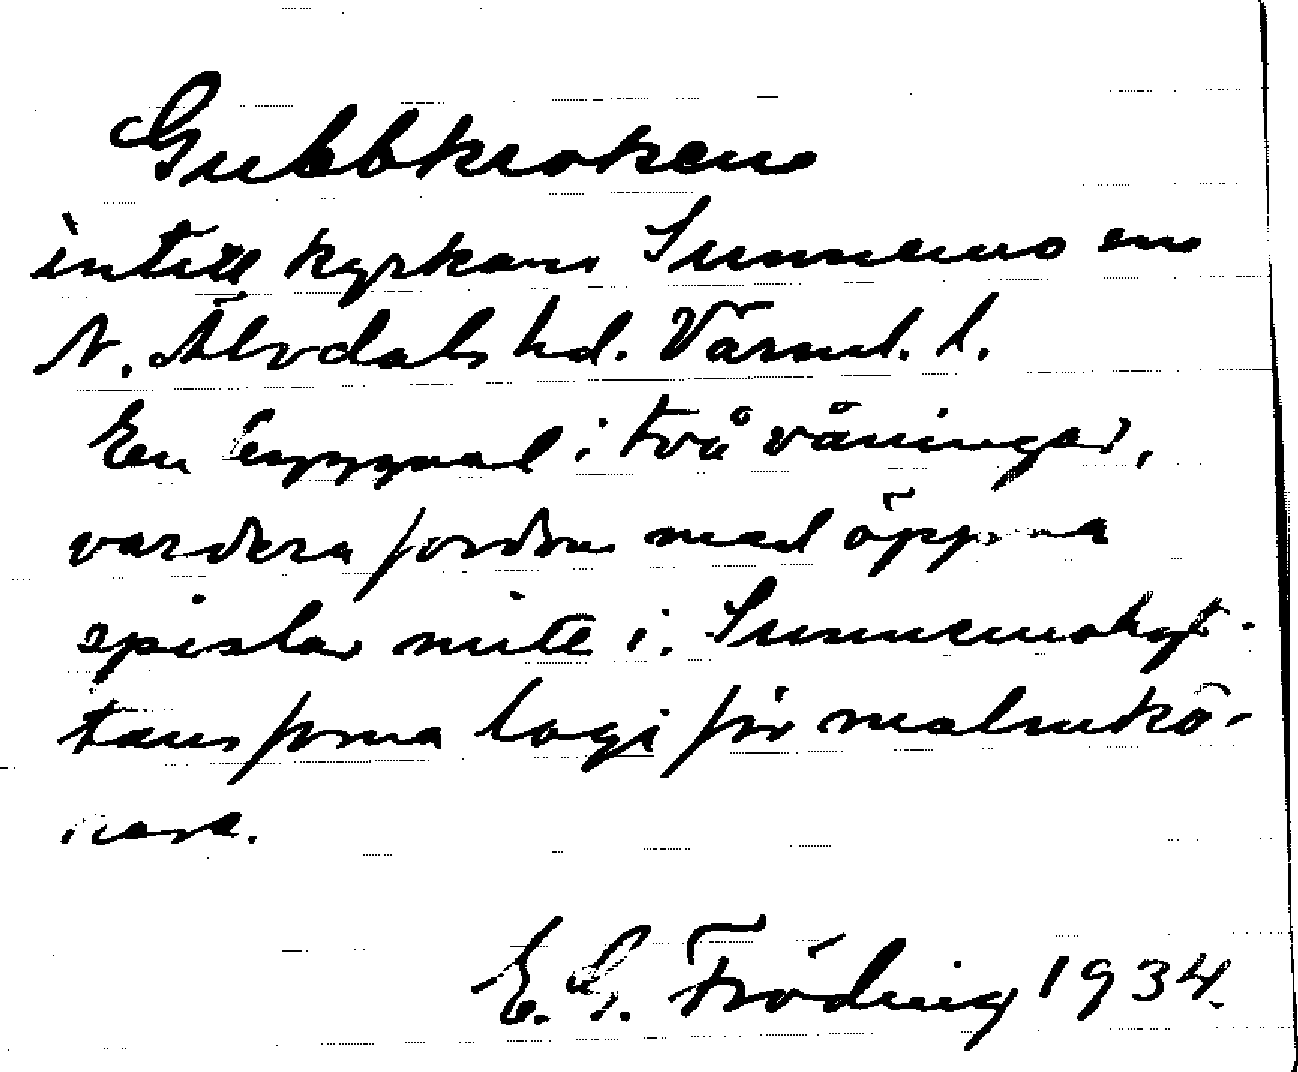 Gubbkroken
intill kyrkan Sunnemo sn
N. Älvdals hd. Värml. l.
En byggnad i två våningar,
vardera fordom med öppna
spislar mitt i. Sunnemohyt-
tans forna logi för malmkö-
rare.
E. G. Fröding 1934.